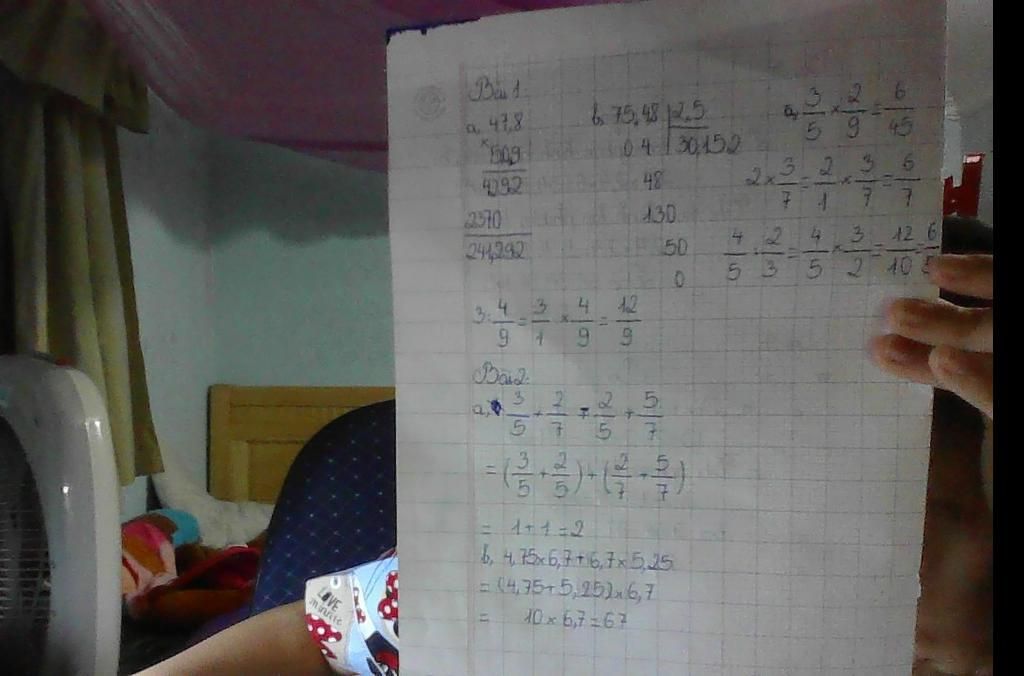 Bài 1:
a, 47,8
×
50,9
4292
2370
241,292
b, 75,48 | 2,5
0 4 30,152
48
130
50
0
a, 3/5 × 2/9 = 6/45
2 × 3/7 = 2/1 × 3/7 = 6/7
4/5 : 2/3 = 4/5 × 3/2 = 12/10 = 6/5
3 : 4/9 = 3/1 × 4/9 = 12/9
Bài 2:
a, 3/5 + 2/7 + 2/5 + 5/7
= (3/5 + 2/5) + (2/7 + 5/7)
= 1 + 1 = 2
b, 4,75 × 6,7 + 6,7 × 5,25
= (4,75 + 5,25) × 6,7
= 10 × 6,7 = 67
LOVE